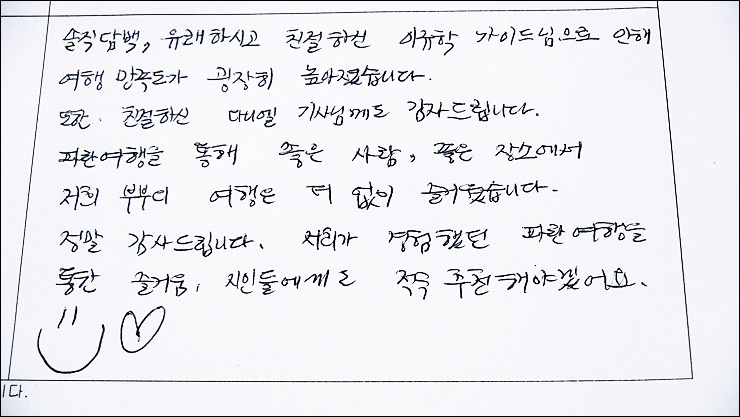 솔직담백, 유쾌하시고 친절하신 이규학 가이드님으로 인해
여행 만족도가 굉장히 높아졌습니다.
또한. 친절하신 다니엘 기사님께도 감사드립니다.
파란여행을 통해 좋은 사람, 좋은 장소에서
저희 부부의 여행은 더 없이 즐거웠습니다.
정말 감사드립니다. 저희가 경험했던 파란여행을
통한 즐거움, 지인들에게도 적극 추천해야겠어요.
니다.